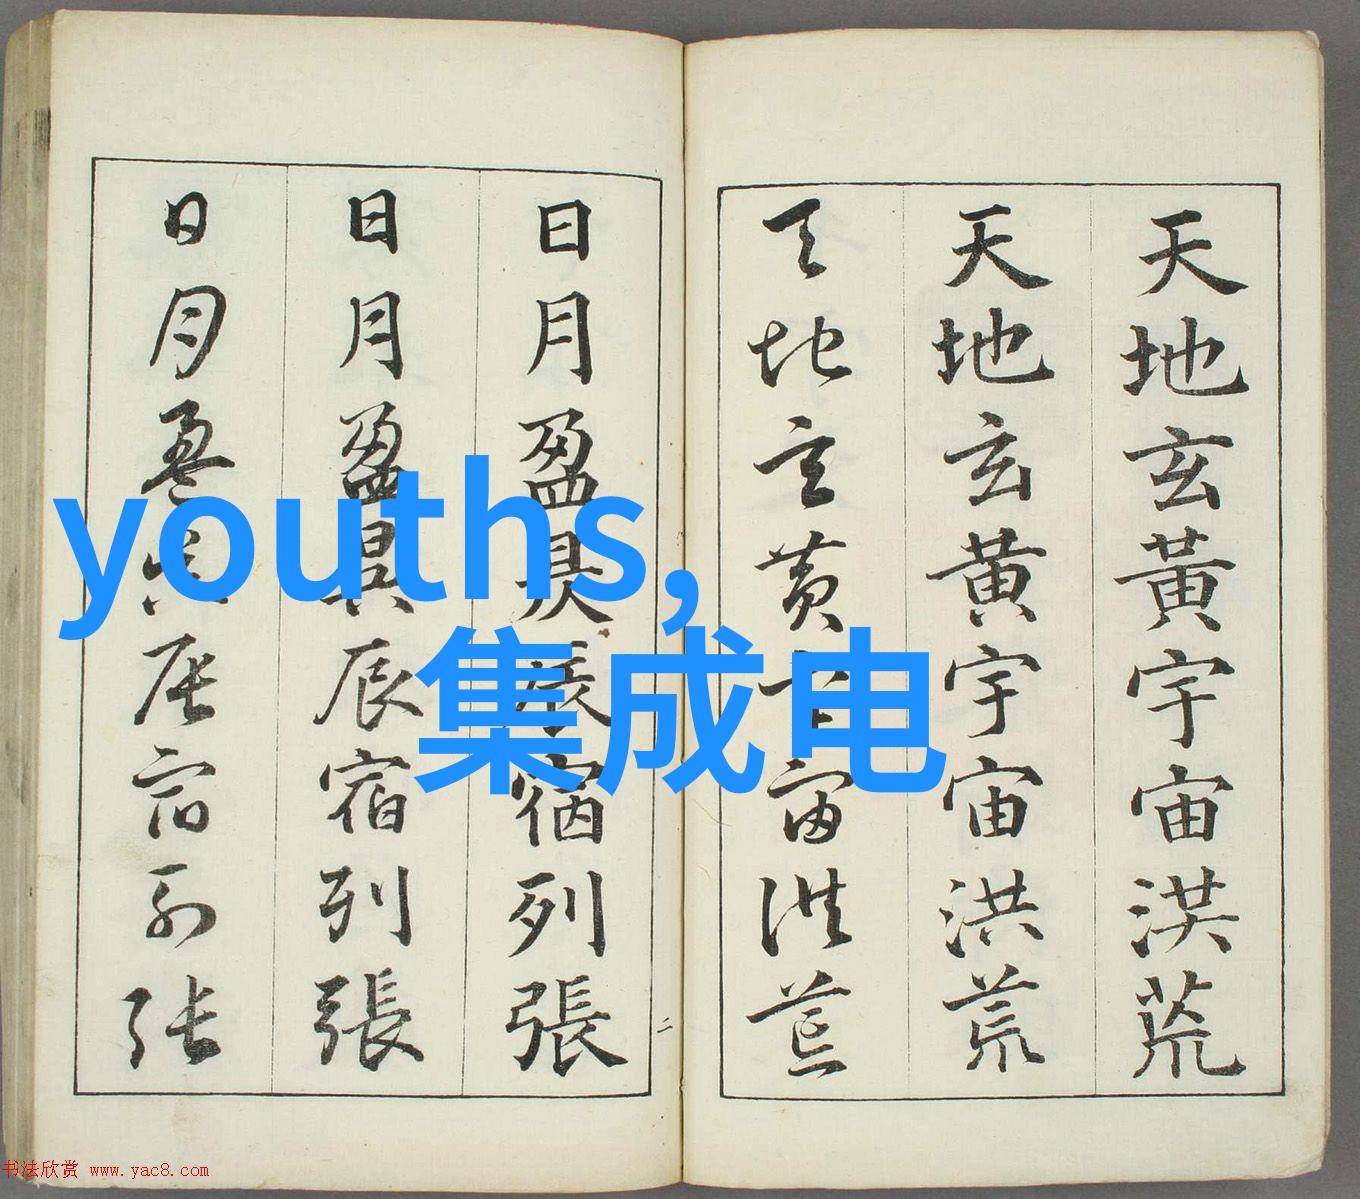 天地玄黃宇宙洪荒
天地玄黄宇宙洪荒
天地玄黄宇宙洪荒
日月盈昃辰宿列張
日月盈昃辰宿列張
日月盈昃辰宿列張
二
youths,
集成电
书法欣赏 www.yac8.com